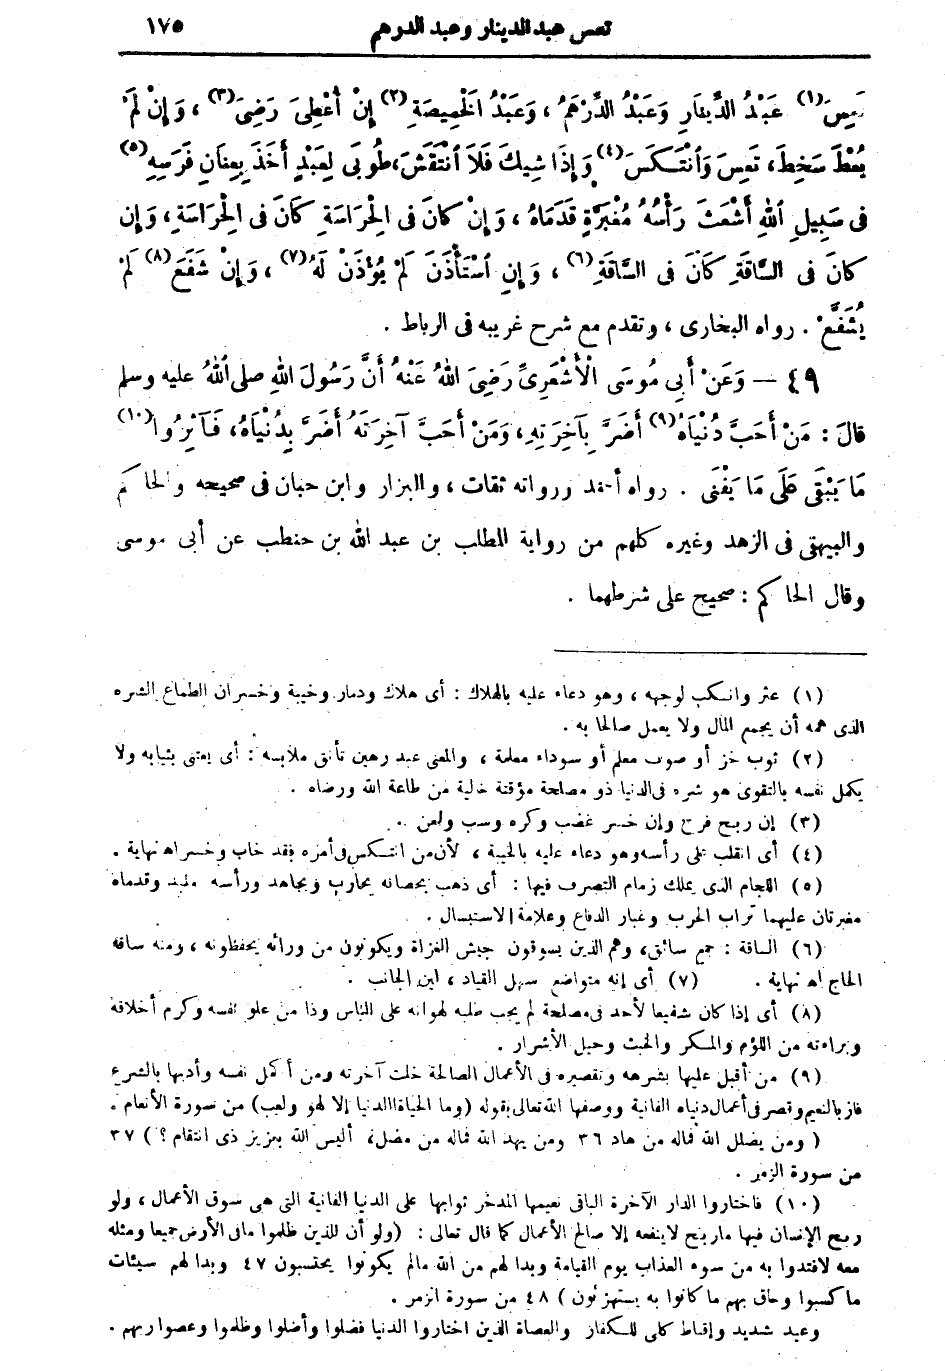 تعس عبد الدينار وعبد الدرهم ١٧٥
تَعِسَ (١) عَبْدُ الدِّينَارِ وَعَبْدُ الدِّرْهَمِ ، وَعَبْدُ الْخَمِيصَةِ (٢) إِنْ أُعْطِىَ رَضِىَ (٣) ، وَإِنْ لَمْ
يُعْطَ سَخِطَ ، تَعِسَ وَٱنْتَكَسَ (٤) وَإِذَا شِيكَ فَلَا ٱنْتَقَشَ ، طُوبَى لِعَبْدٍ أَخَذَ بِعِنَانِ فَرَسِهِ (٥)
فِى سَبِيلِ ٱللهِ أَشْعَثَ رَأْسُهُ مُغْبَرَّةٍ قَدَمَاهُ ، وَإِنْ كَانَ فِى الْحِرَاسَةِ كَانَ فِى الْحِرَاسَةِ ، وَإِن
كَانَ فِى السَّاقَةِ كَانَ فِى السَّاقَةِ (٦) ، وَإِنِ ٱسْتَأْذَنَ لَمْ يُؤْذَنْ لَهُ (٧) ، وَإِنْ شَفَعَ (٨) لَمْ
يُشَفَّعْ . رواه البخارى ، وتقدم مع شرح غريبه فى الرباط .
٤٩ — وَعَنْ أَبِي مُوسَى الْأَشْعَرِىِّ رَضِىَ اللهُ عَنْهُ أَنَّ رَسُولَ اللهِ صلى ٱللهُ عليه وسلم
قَالَ : مَنْ أَحَبَّ دُنْيَاهُ (٩) أَضَرَّ بِآخِرَتِهِ ، وَمَنْ أَحَبَّ آخِرَتَهُ أَضَرَّ بِدُنْيَاهُ ، فَآثِرُوا (١٠)
مَا يَبْقَى عَلَى مَا يَفْنَى . رواه أحمد ورواته ثقات ، والبزار وابن حبان فى صحيحه والحاكم
والبيهقى فى الزهد وغيره كلهم من رواية المطلب بن عبد الله بن حنطب عن أبى موسى
وقال الحاكم : صحيح على شرطهما .
(١) عثر وانكب لوجهه ، وهو دعاء عليه بالهلاك : أى هلاك ودمار وخيبة وخسران الطماع الشره
الذى همه أن يجمع المال ولا يعمل صالحا به .
(٢) ثوب خز أو صوف معلم أو سوداء معلمة ، والمعنى عبد رهين تأنق ملابسه : أى يعتنى بثيابه ولا
يكمل نفسه بالتقوى هو شره فى الدنيا ذو مصلحة مؤقتة خالية من طاعة الله ورضاه .
(٣) إن ربح فرح وإن خسر غضب وكره وسب ولعن .
(٤) أى انقلب على رأسه وهو دعاء عليه بالخيبة ، لأن من انتكس فى أمره فقد خاب وخسر اه نهاية .
(٥) اللجام الذى يملك زمام التصرف فيها : أى ذهب بحصانه يحارب ويجاهد ورأسه ملبد وقدماه
مغبرتان عليهما تراب الحرب وغبار الدفاع وعلامة الاستبسال .
(٦) الساقة : جمع سائق ، وهم الذين يسوقون جيش الغزاة ويكونون من ورائه يحفظونه ، ومنه ساقة
الحاج اه نهاية . (٧) أى إنه متواضع سهل القياد ، لين الجانب .
(٨) أى إذا كان شفيعا لأحد فى مصلحة لم يجب طلبه لهوانه على الناس وذا من علو نفسه وكرم أخلاقه
وبراءته من اللؤم والمكر والخبث وحيل الأشرار .
(٩) من أقبل عليها بشرهه وتقصيره فى الأعمال الصالحة خلت آخرته ومن أكمل نفسه وأدبها بالشرع
فاز بالنعيم وقصر فى أعمال دنياه الفانية ووصفها الله تعالى بقوله (وما الحياة الدنيا إلا لهو ولعب) من سورة الأنعام .
( ومن يضلل الله فماله من هاد ٣٦ ومن يهد الله فماله من مضل ، أليس الله بعزيز ذى انتقام ؟ ) ٣٧
من سورة الزمر .
(١٠) فاختاروا الدار الآخرة الباقى نعيمها المدخر ثوابها على الدنيا الفانية التى هى سوق الأعمال ، ولو
ربح الإنسان فيها ماربح لاينفعه إلا صالح الأعمال كما قال تعالى : (ولو أن للذين ظلموا مافى الأرض جميعا ومثله
معه لافتدوا به من سوء العذاب يوم القيامة وبدا لهم من الله مالم يكونوا يحتسبون ٤٧ وبدا لهم سيئات
ما كسبوا وحاق بهم ما كانوا به يستهزئون ) ٤٨ من سورة الزمر .
وعيد شديد وإقناط كلى للكفار والعصاة الذين اختاروا الدنيا فضلوا وأضلوا وظلموا وعصوا ربهم .